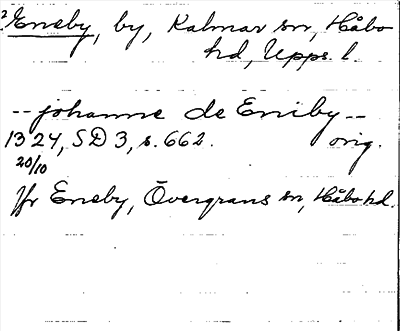 ² Eneby, by, Kalmar sn, Håbo
hd, Upps. l.
-- johanne de Eniby --
1324, SD 3, s. 662. orig.
20/10
Jfr Eneby, Övergrans sn, Håbo hd.